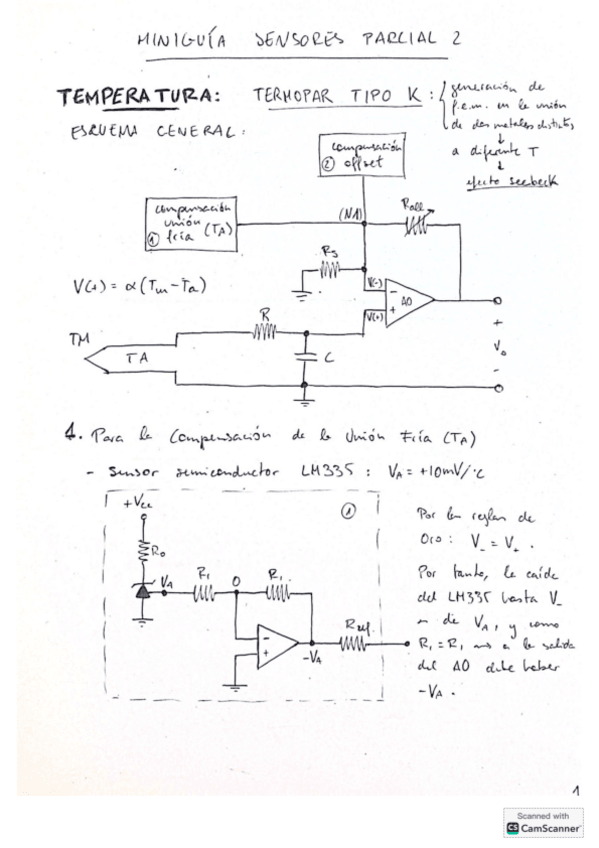 MINIGUÍA SENSORES PARCIAL 2
TEMPERATURA: TERMOPAR TIPO K:
generación de
f.e.m. en la unión
de dos metales distintos
↓
a diferente T
↓
efecto seebeck
ESQUEMA GENERAL:
compensación
② offset
compensación
unión
① fría (TA)
(N1)
Rall
R5
V(+) = α(Tm-Ta)
V(-)
AO
V(+)
R
TM
TA
C
+
Vo
-
1. Para la Compensación de la Unión Fría (TA)
- Sensor semiconductor LM335 : VA = +10mV/ºC
+Vcc
①
R0
VA
R1
0
R1
-
+
-VA
Rref.
Por las reglas de
Oro: V_ = V+.
Por tanto, la caída
del LM335 hasta V_
es de VA, y como
R1 = R1 → a la salida
del AO debe haber
-VA.
1
Scanned with
CS CamScanner